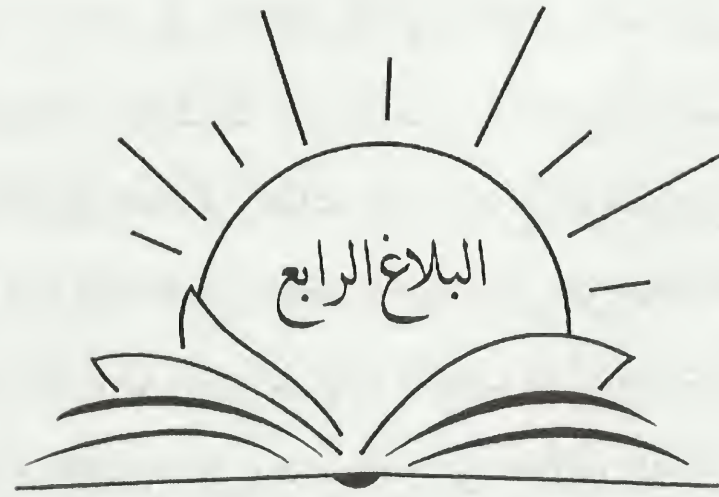 البلاغ الرابع